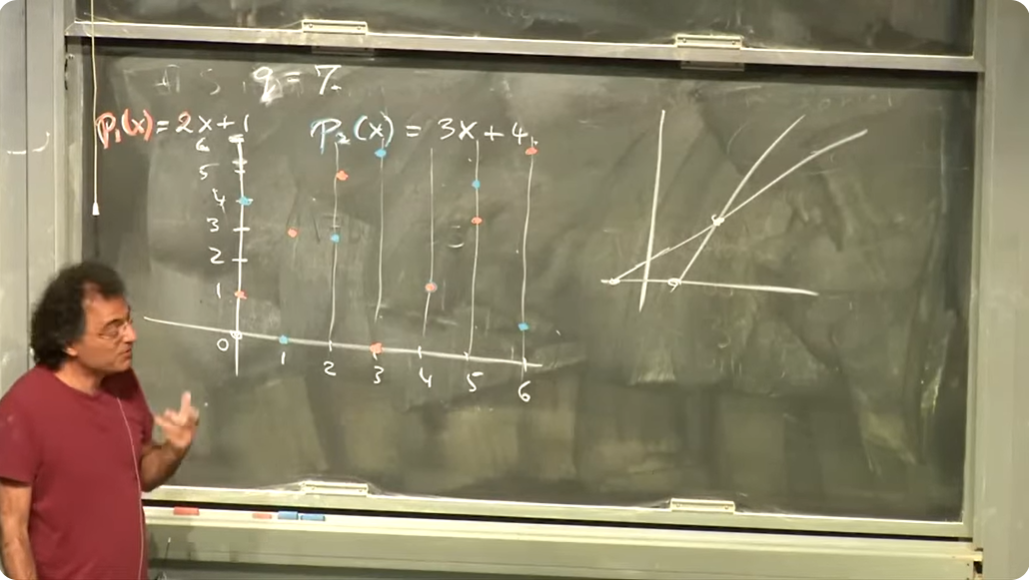 q = 7.
p₁(x) = 2x+1
p₂(x) = 3x+4
6
5
4
3
2
1
0
1 2 3 4 5 6